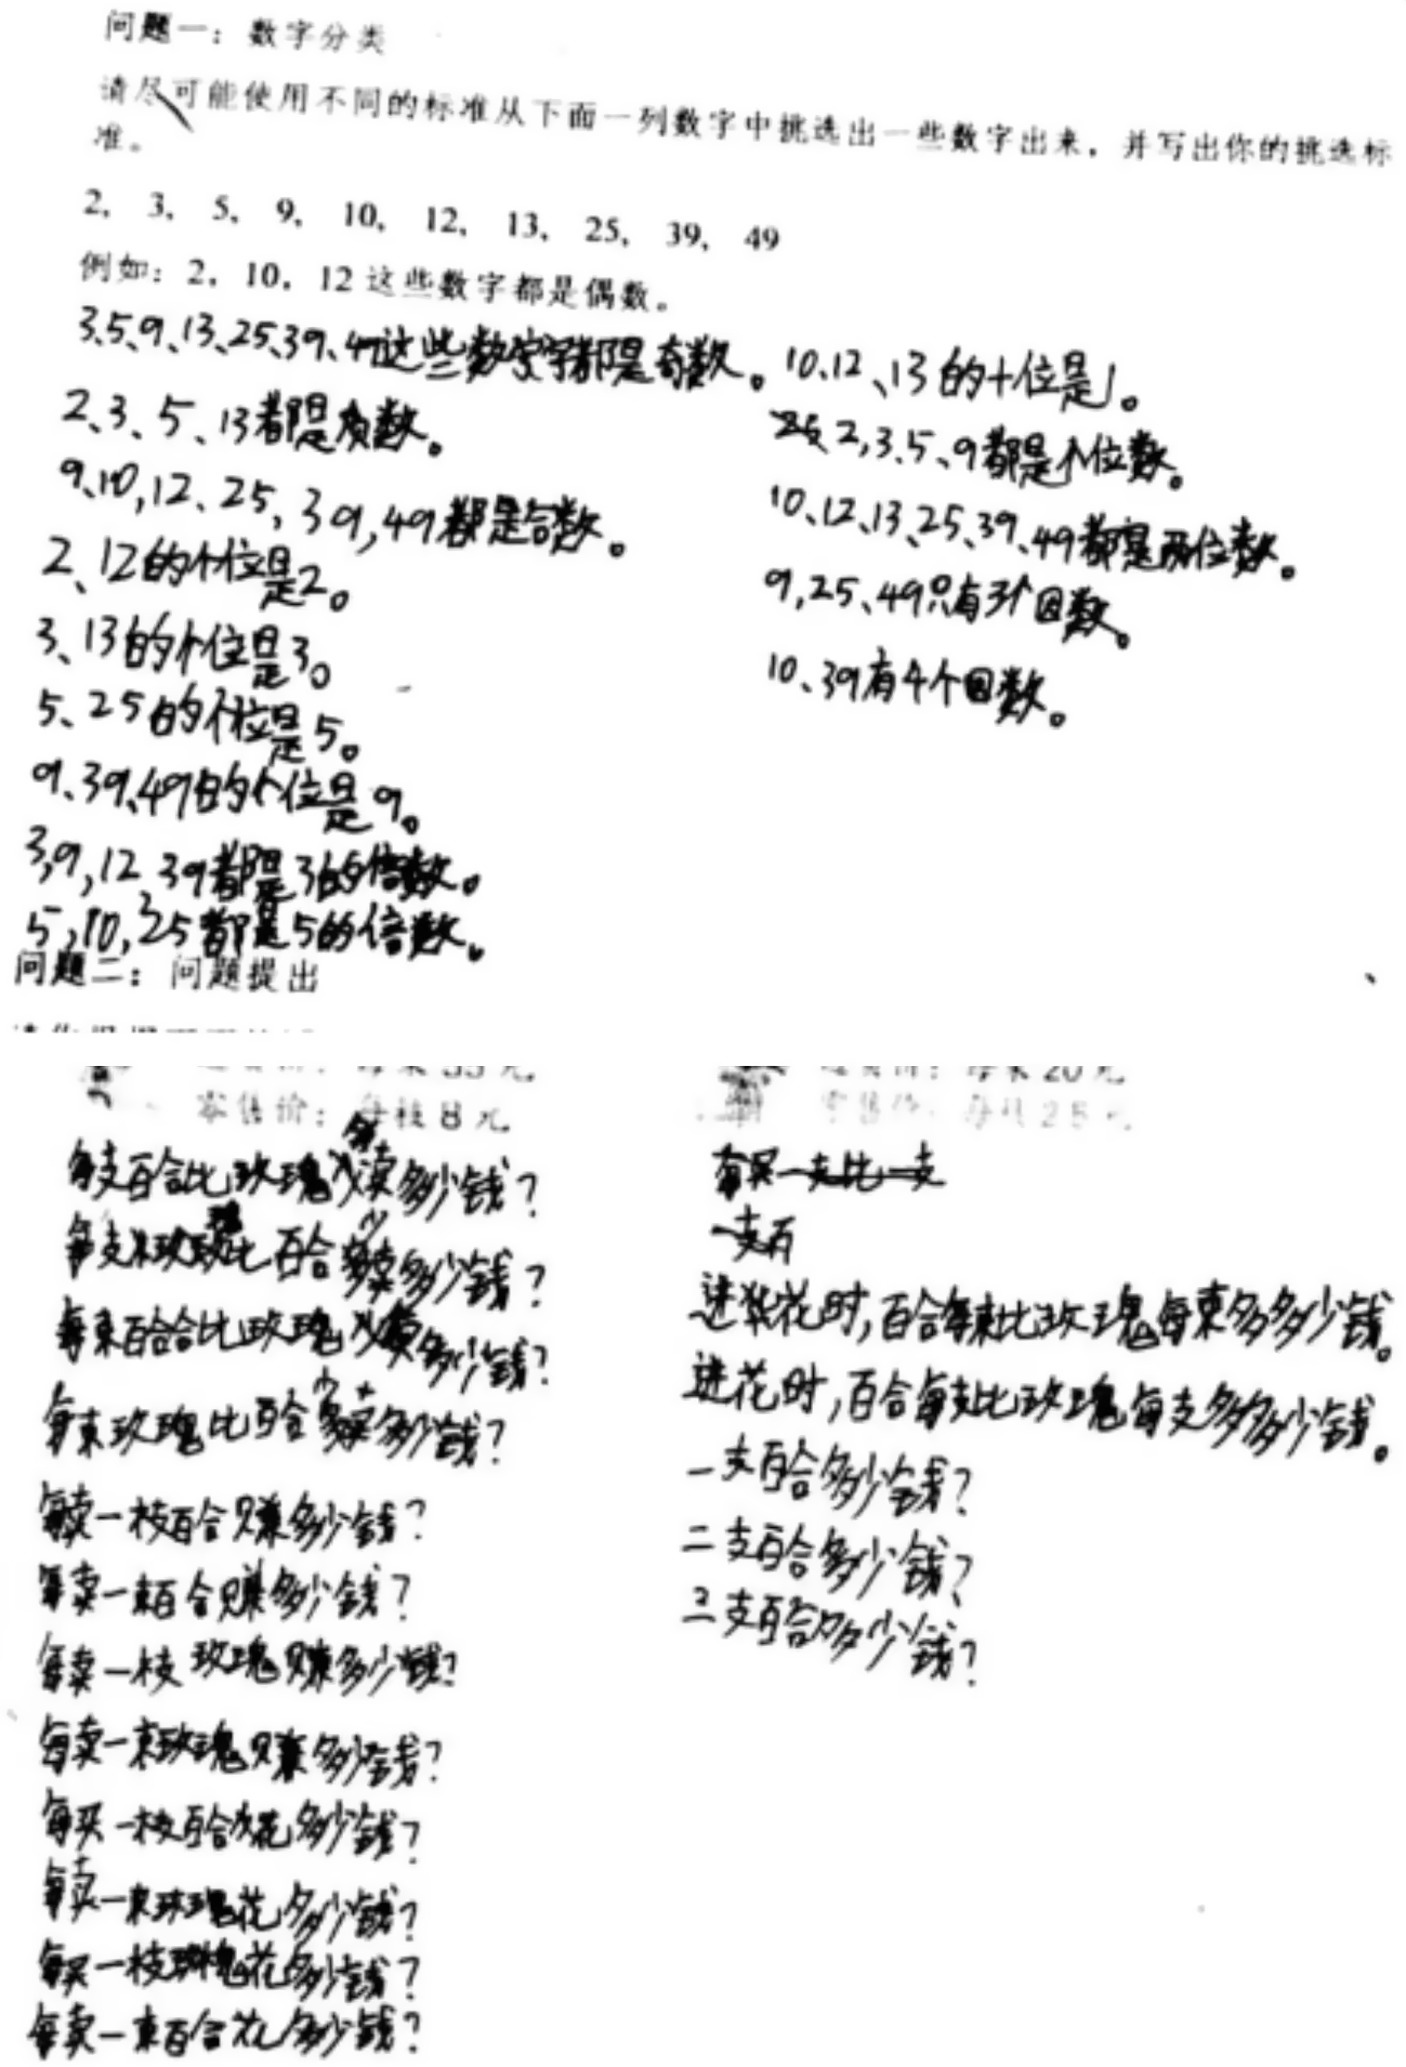 问题一：数字分类
请尽可能使用不同的标准从下面一列数字中挑选出一些数字出来，并写出你的挑选标
准。
2， 3， 5， 9， 10， 12， 13， 25， 39， 49
例如：2，10，12 这些数字都是偶数。
3、5、9、13、25、39、49这些数字都是奇数。
2、3、5、13都是质数。
9、10，12、25，39，49都是合数。
2、12的个位是2。
3、13的个位是3。
5、25的个位是5。
9、39、49的个位是9。
3，9，12，39都是3的倍数。
5，10，25都是5的倍数。
10、12、13的十位是1。
2，3、5、9都是个位数。
10、12、13、25、39、49都是两位数。
9，25、49只有3个因数。
10、39有4个因数。
问题二：问题提出
零售价：每枝8元
每支百合比玫瑰多卖多少钱？
每支玫瑰比百合少卖多少钱？
每束百合比玫瑰多卖多少钱？
每束玫瑰比百合少卖多少钱？
每卖一枝百合赚多少钱？
每卖一束百合赚多少钱？
每卖一枝玫瑰赚多少钱？
每卖一束玫瑰赚多少钱？
每买一枝百合花多少钱？
每买一束玫瑰花多少钱？
每买一枝玫瑰花多少钱？
每卖一束百合花多少钱？
一支百
进花时，百合每束比玫瑰每束多多少钱。
进花时，百合每支比玫瑰每支多多少钱。
一支百合多少钱？
二支百合多少钱？
三支百合多少钱？